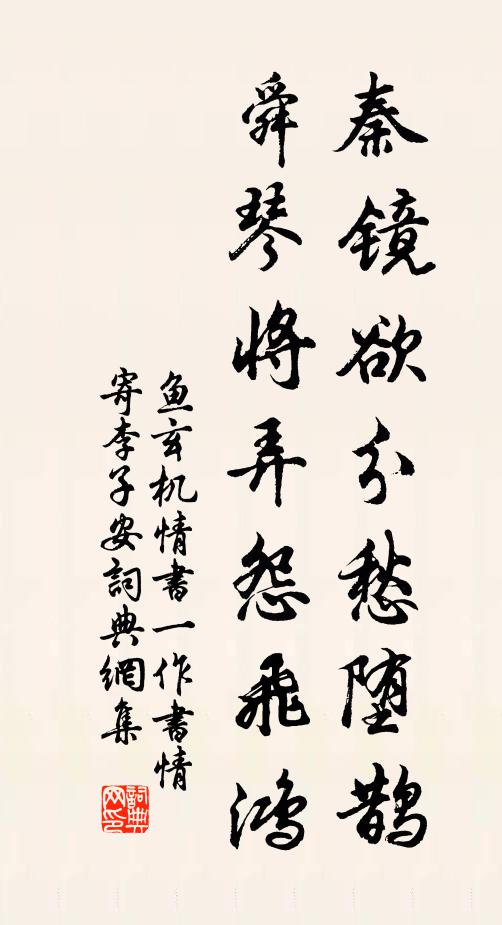 秦镜欲分愁堕鹊
舜琴将弄怨飛鸿
鱼玄机情書一作書情
寄李子安詞典網集
詞典网印